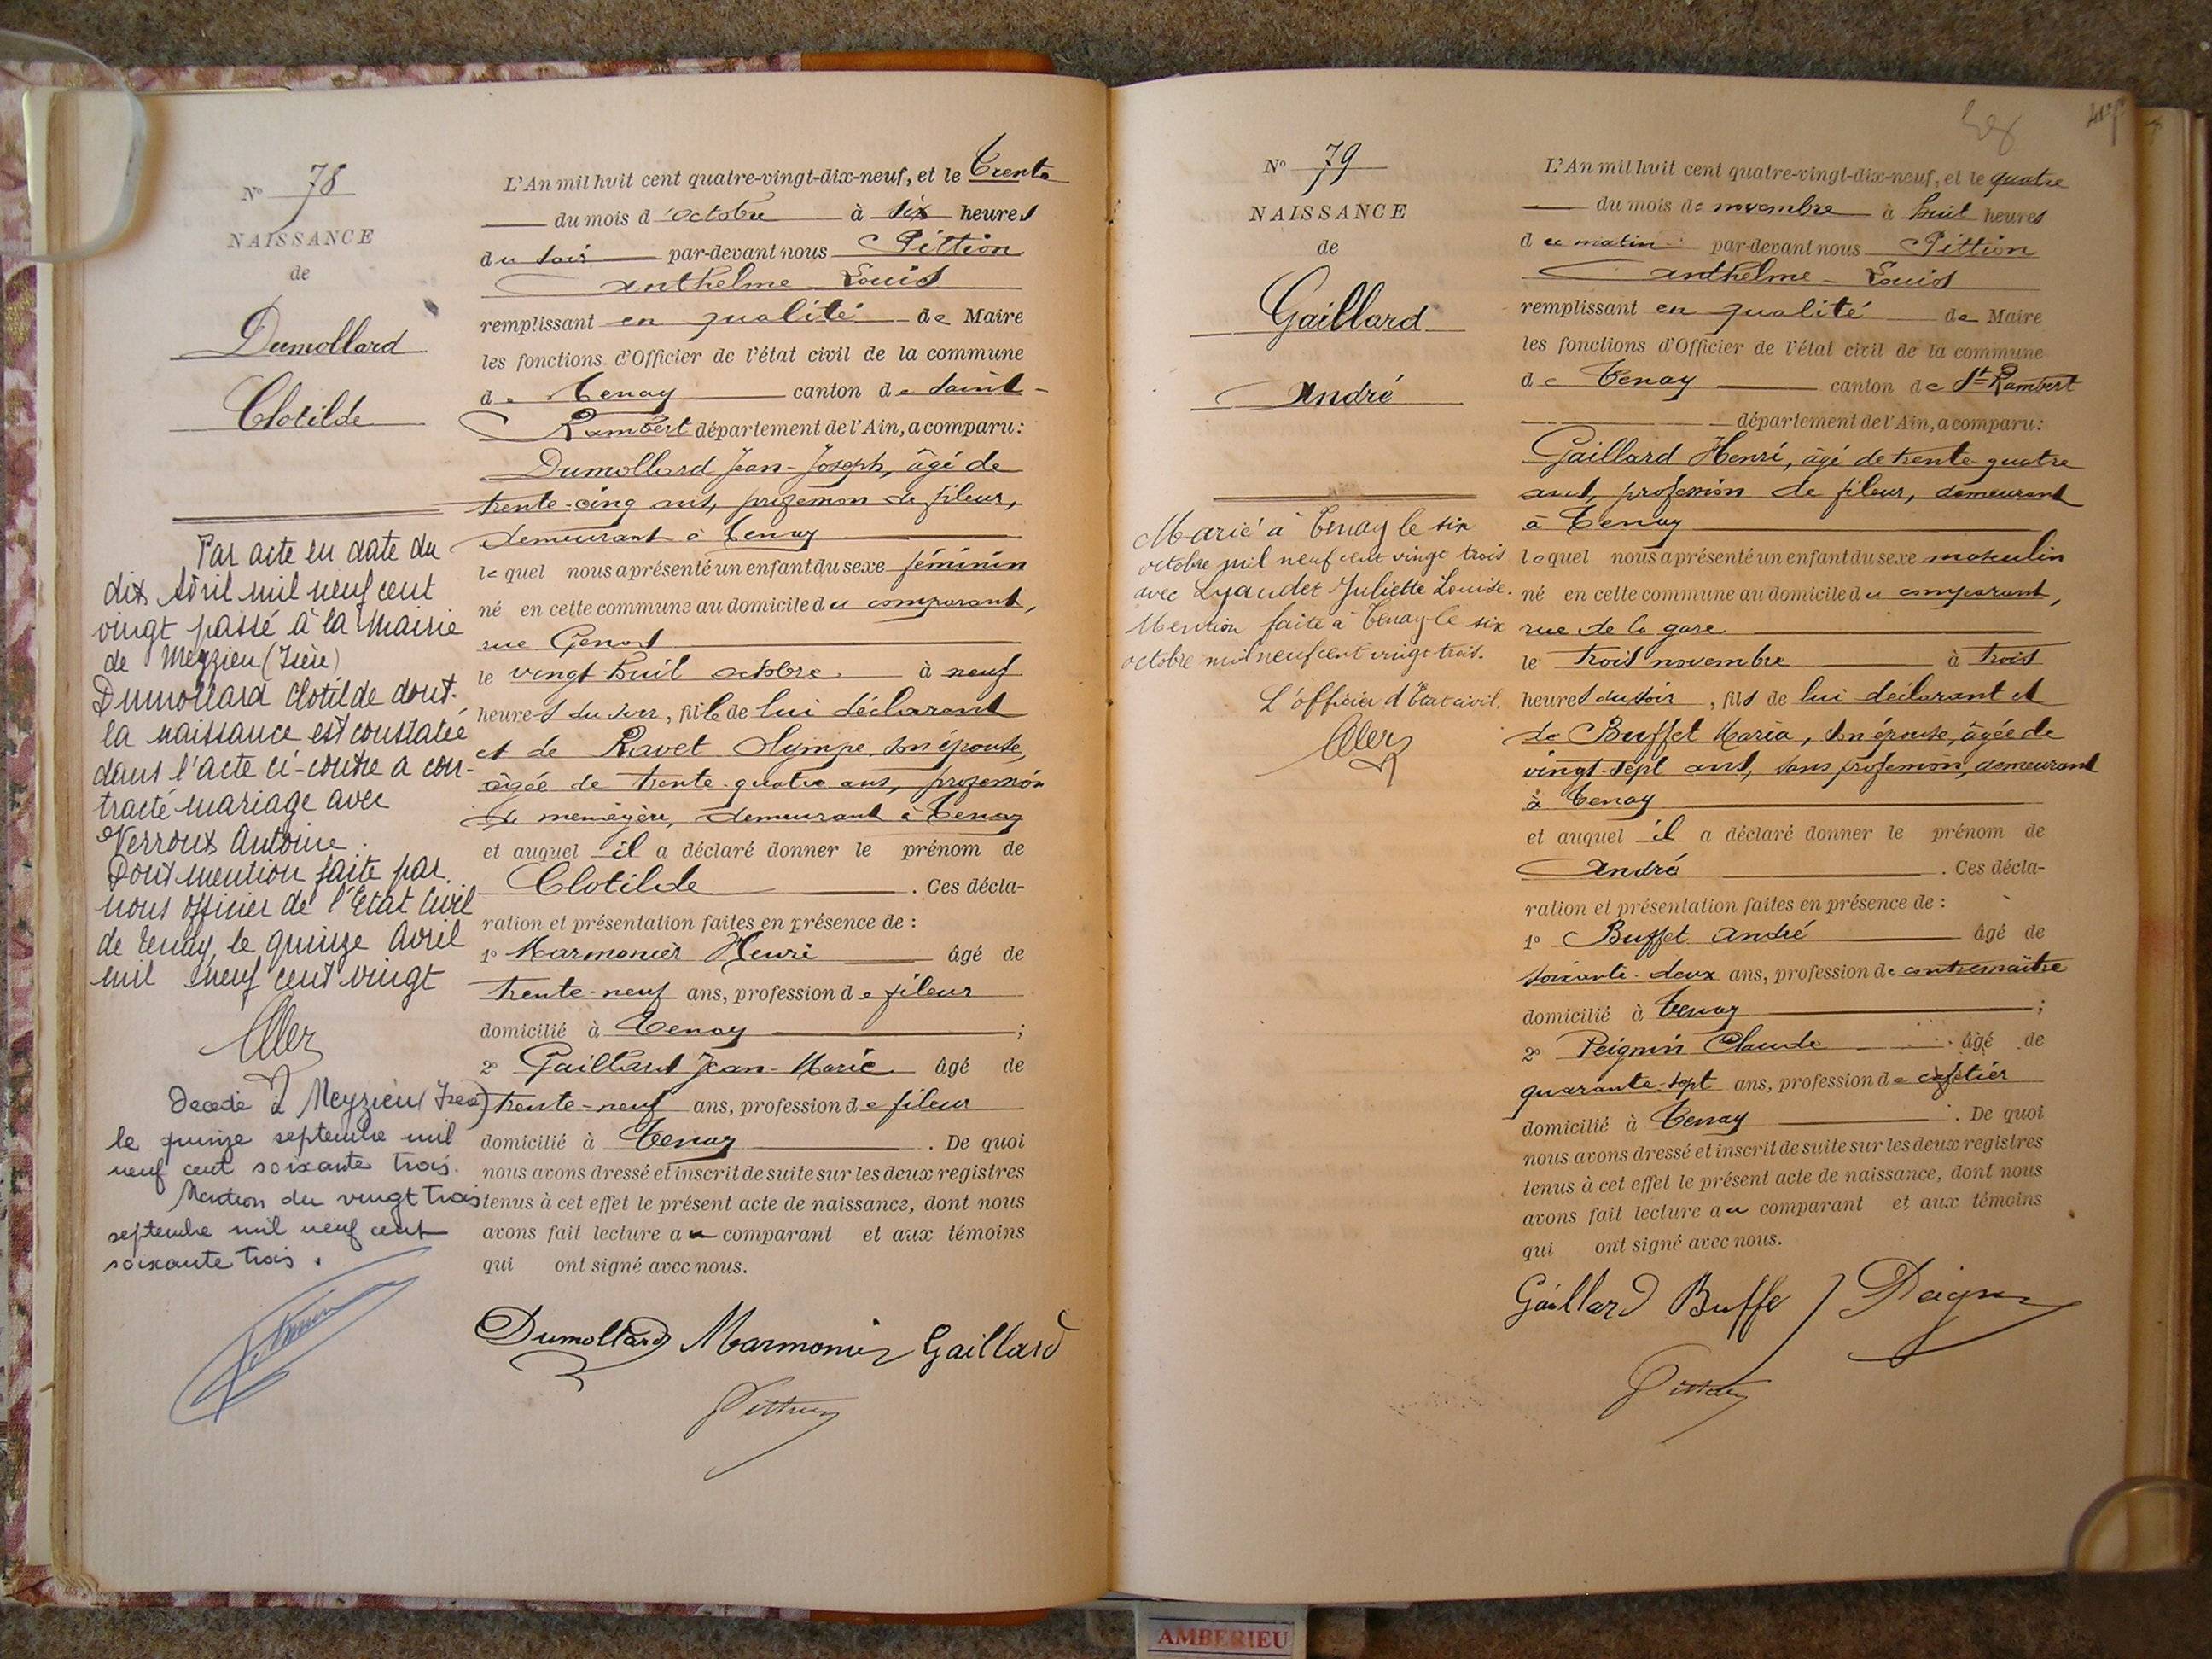 N° 78
NAISSANCE
de
Dumollard
Clotilde
Par acte en date du
dix Avril mil neuf cent
vingt passé à la Mairie
de Meyzieu (Isère)
Dumollard Clotilde dont
la naissance est constatée
dans l'acte ci-contre a con-
tracté mariage avec
Verroux Antoine.
Dont mention faite par
nous officier de l'Etat Civil
de Tenay, le quinze Avril
mil neuf cent vingt
Décédé à Meyzieu (Isère)
le quinze septembre mil
neuf cent soixante trois.
Mention du vingt trois
septembre mil neuf cent
soixante trois.
L'An mil huit cent quatre-vingt-dix-neuf, et le Trente
du mois d'octobre à six heures
du soir par-devant nous Pittion
Anthelme Louis
remplissant en qualité de Maire
les fonctions d'Officier de l'état civil de la commune
de Tenay canton de Saint-
Rambert département de l'Ain, a comparu:
Dumollard Jean-Joseph, âgé de
trente-cinq ans, profession de fileur,
demeurant à Tenay
lequel nous a présenté un enfant du sexe féminin
né en cette commune au domicile du comparant,
rue Genod
le vingt-huit octobre à neuf
heures du soir, fille de lui déclarant
et de Ravet Olympe, son épouse,
âgée de trente-quatre ans, profession
de ménagère, demeurant à Tenay
et auquel il a déclaré donner le prénom de
Clotilde. Ces décla-
ration et présentation faites en présence de :
1° Marmonier Henri âgé de
trente-neuf ans, profession de fileur
domicilié à Tenay ;
2° Gaillard Jean-Marie âgé de
trente-neuf ans, profession de fileur
domicilié à Tenay. De quoi
nous avons dressé et inscrit de suite sur les deux registres
tenus à cet effet le présent acte de naissance, dont nous
avons fait lecture au comparant et aux témoins
qui ont signé avec nous.
Dumollard Marmonier Gaillard
Pittion
N° 79
NAISSANCE
de
Gaillard
André
Marié à Tenay le six
octobre mil neuf cent vingt trois
avec Lyaudet Juliette Louise.
Mention faite à Tenay le six
octobre mil neuf cent vingt trois.
L'officier d'Etat civil.
L'An mil huit cent quatre-vingt-dix-neuf, et le quatre
du mois de novembre à huit heures
du matin par-devant nous Pittion
Anthelme - Louis
remplissant en qualité de Maire
les fonctions d'Officier de l'état civil de la commune
de Tenay canton de St Rambert
département de l'Ain, a comparu:
Gaillard Henri, âgé de trente-quatre
ans, profession de fileur, demeurant
à Tenay
lequel nous a présenté un enfant du sexe masculin
né en cette commune au domicile du comparant,
rue de la gare
le trois novembre à trois
heures du soir, fils de lui déclarant et
de Buffet Maria, son épouse, âgée de
vingt-sept ans, sans profession, demeurant
à Tenay
et auquel il a déclaré donner le prénom de
André. Ces décla-
ration et présentation faites en présence de :
1° Buffet André âgé de
soixante-deux ans, profession de contremaître
domicilié à Tenay ;
2° Peignin Claude âgé de
quarante-sept ans, profession de cafetier
domicilié à Tenay. De quoi
nous avons dressé et inscrit de suite sur les deux registres
tenus à cet effet le présent acte de naissance, dont nous
avons fait lecture au comparant et aux témoins
qui ont signé avec nous.
Gaillard Buffet Peignin
Pittion
AMBERIEU